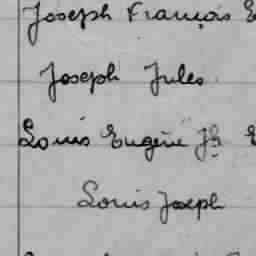 Joseph François E
Joseph Jules
Louis Eugène Jh E
Louis Joseph